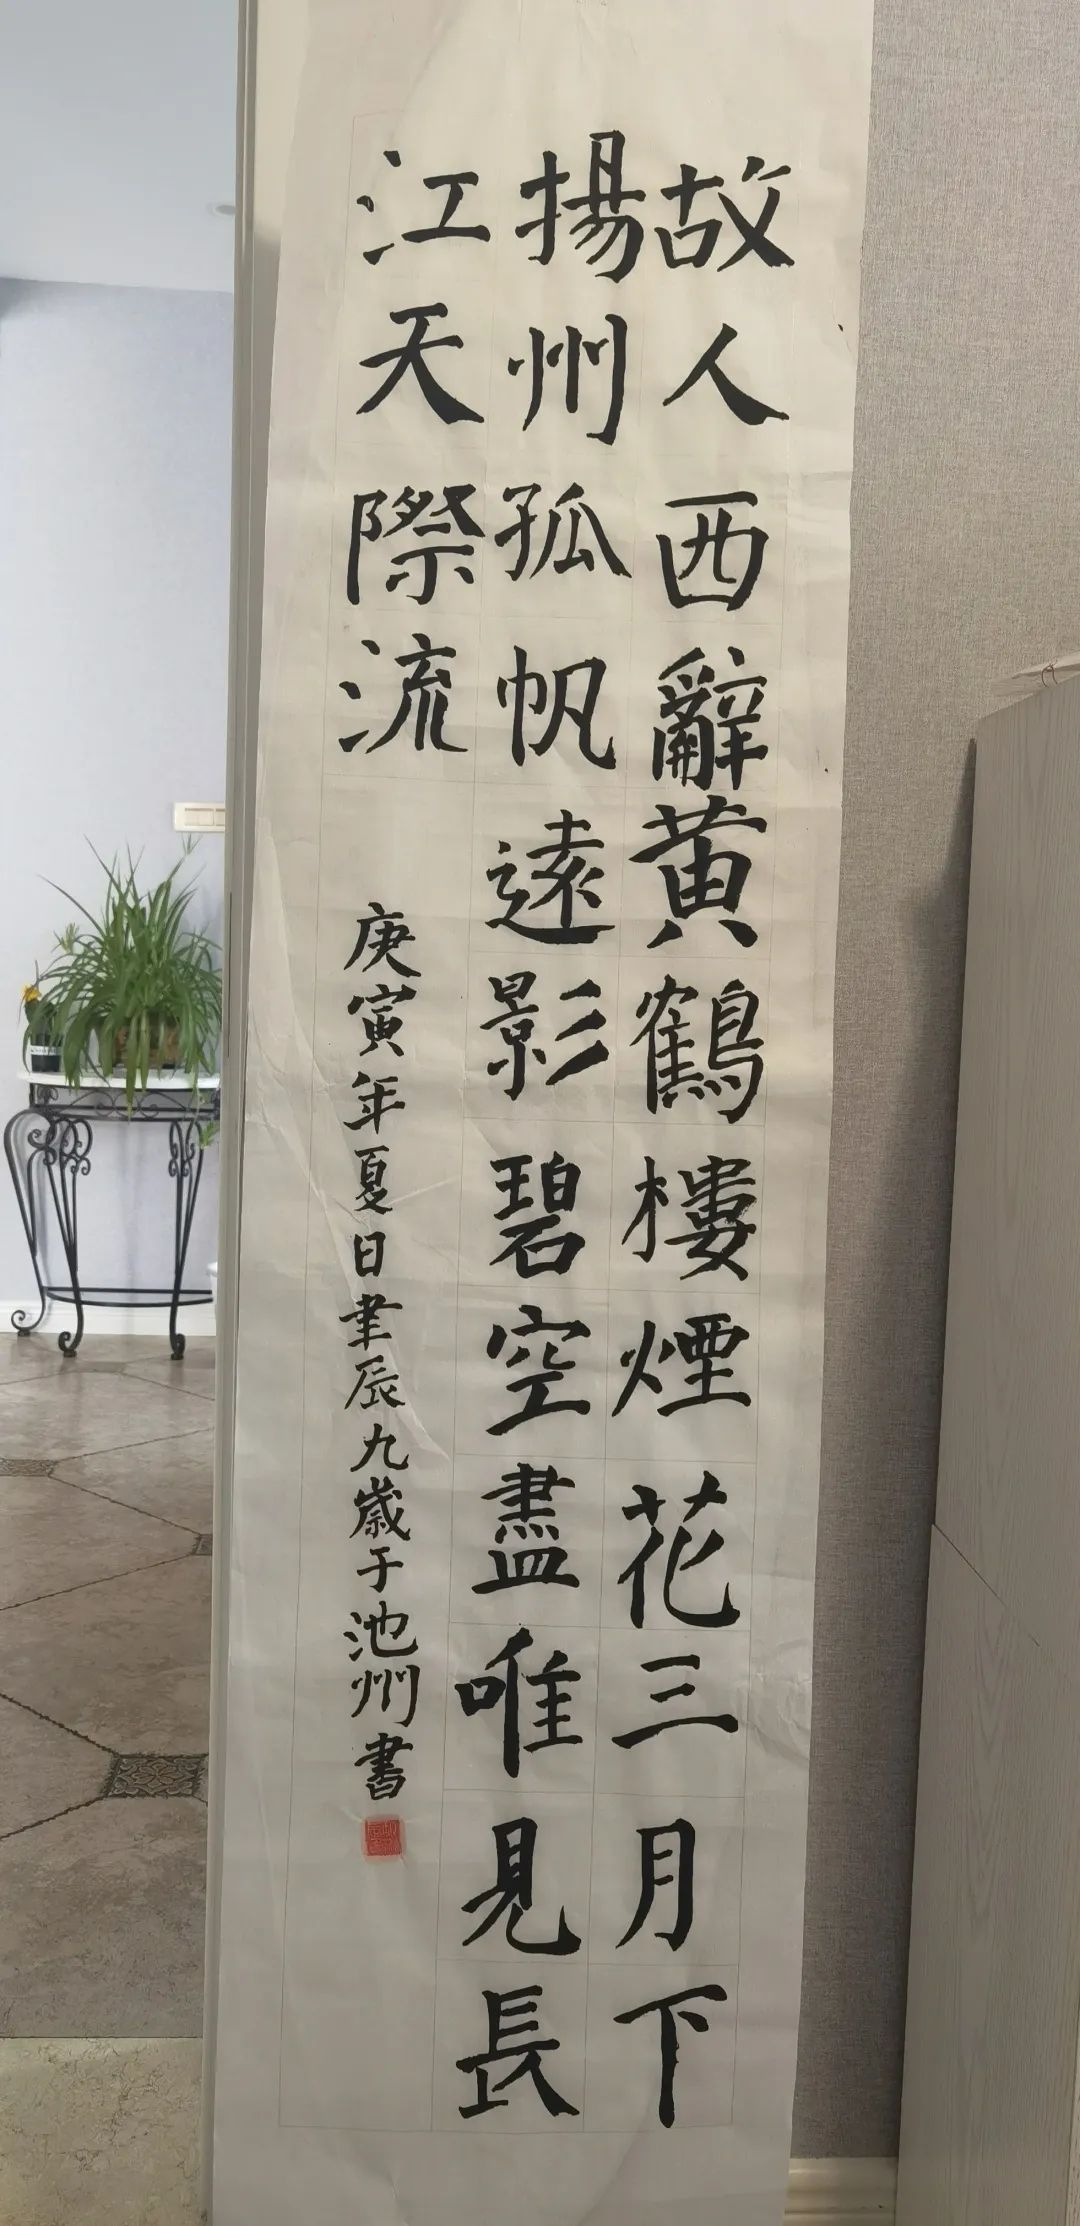 故人西辭黄鶴樓煙花三月下
揚州孤帆遠影碧空盡唯見長
江天際流
庚寅年夏日聿辰九歲于池州書